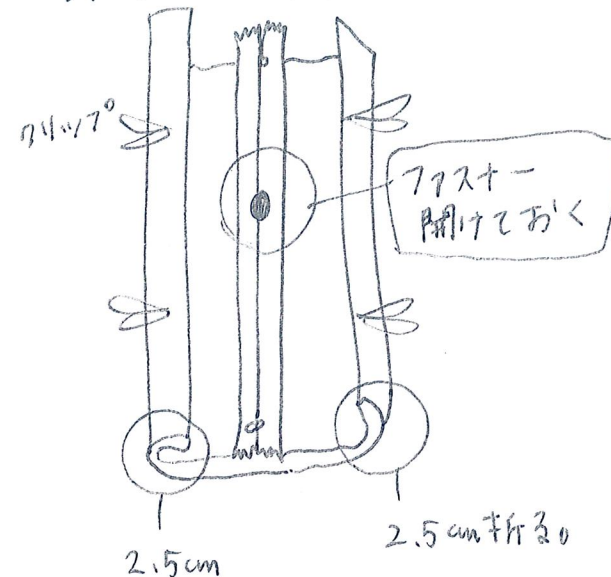 クリップ
ファスナー
開けておく
2.5cm
2.5cm折る。